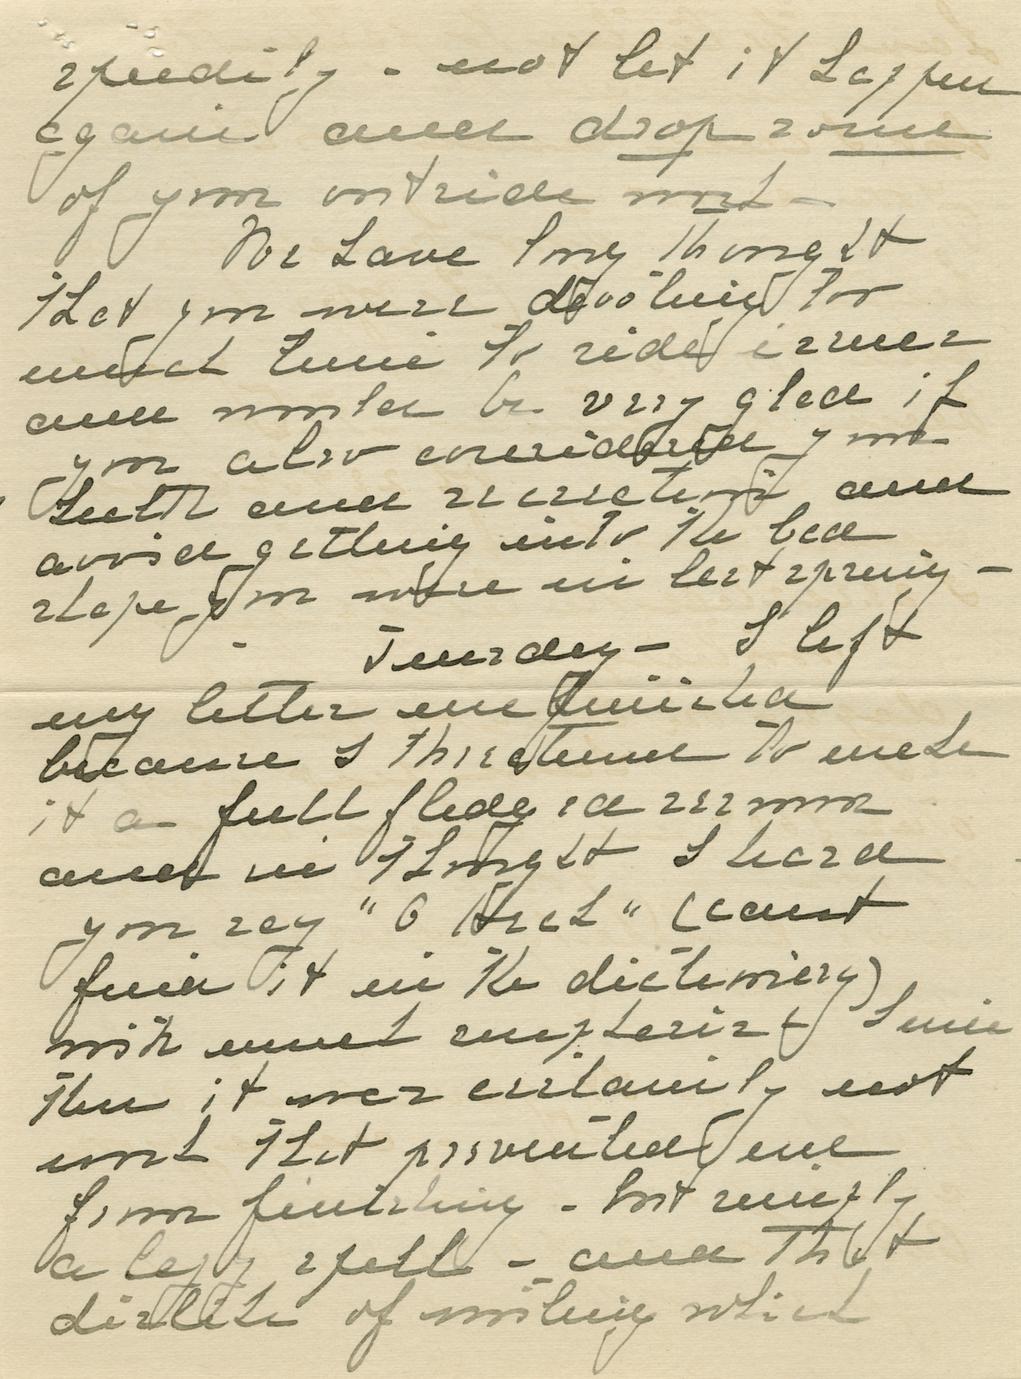 speedily - not let it happen
again and drop some
of your outside work -
We have long thought
that you were devoting too
much time to side issues
and would be very glad if
you also considered your
health and recreation and
avoid getting into the bad
shape you were in last spring -
Tuesday - I left
my letter unfinished
because I threatened to make
it a full fledged sermon
and in thought I heard
you say "O" (cant
find it in the dictionary)
with much emphasis + Since
then it was certainly not
work that prevented me
from finishing - but simply
a lazy spell - and that
dislike of writing which